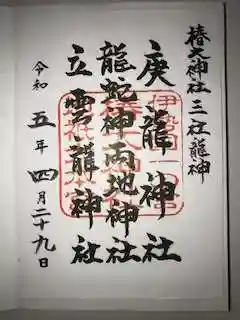 椿大神社 三社龍神
庚龍神社
龍蛇神両地神社
立雲龍神社
令和五年四月二十九日